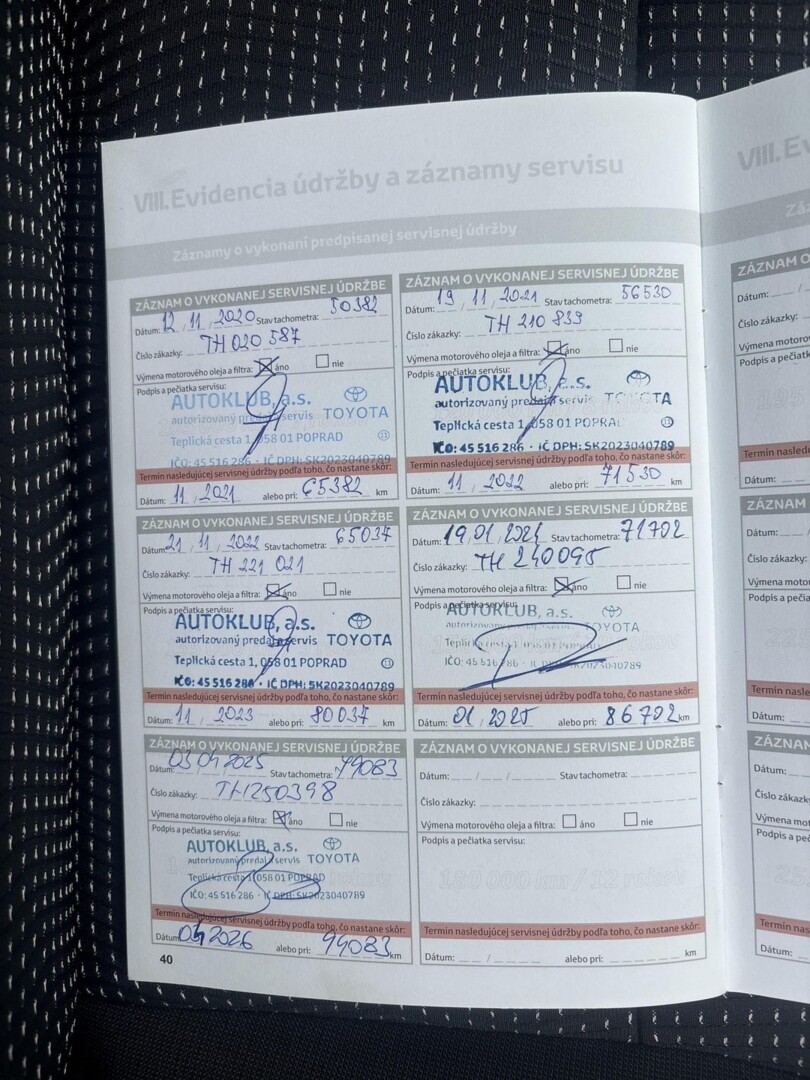 VIII. Evidencia údržby a záznamy servisu
Záznamy o vykonaní predpísanej servisnej údržby
ZÁZNAM O VYKONANEJ SERVISNEJ ÚDRŽBE
Dátum: 12 / 11 / 2020 Stav tachometra: 50382
Číslo zákazky: TH 020 587
Výmena motorového oleja a filtra: áno nie
Podpis a pečiatka servisu:
AUTOKLUB, a.s.
autorizovaný predaj a servis TOYOTA
Teplická cesta 1, 058 01 POPRAD
IČO: 45 516 286 · IČ DPH: SK2023040789
Termín nasledujúcej servisnej údržby podľa toho, čo nastane skôr:
Dátum: 11 / 2021 alebo pri: 65382 km
ZÁZNAM O VYKONANEJ SERVISNEJ ÚDRŽBE
Dátum: 19 / 11 / 2021 Stav tachometra: 56530
Číslo zákazky: TH 210 839
Výmena motorového oleja a filtra: áno nie
Podpis a pečiatka servisu:
AUTOKLUB, a.s.
autorizovaný predaj a servis TOYOTA
Teplická cesta 1, 058 01 POPRAD
IČO: 45 516 286 · IČ DPH: SK2023040789
Termín nasledujúcej servisnej údržby podľa toho, čo nastane skôr:
Dátum: 11 / 2022 alebo pri: 71530 km
ZÁZNAM O VYKONANEJ SERVISNEJ ÚDRŽBE
Dátum: 21 / 11 / 2022 Stav tachometra: 65037
Číslo zákazky: TH 221 021
Výmena motorového oleja a filtra: áno nie
Podpis a pečiatka servisu:
AUTOKLUB, a.s.
autorizovaný predaj a servis TOYOTA
Teplická cesta 1, 058 01 POPRAD
IČO: 45 516 286 · IČ DPH: SK2023040789
Termín nasledujúcej servisnej údržby podľa toho, čo nastane skôr:
Dátum: 11 / 2023 alebo pri: 80037 km
ZÁZNAM O VYKONANEJ SERVISNEJ ÚDRŽBE
Dátum: 19 / 01 / 2024 Stav tachometra: 71702
Číslo zákazky: TH 240095
Výmena motorového oleja a filtra: áno nie
Podpis a pečiatka servisu:
AUTOKLUB, a.s.
TOYOTA
Teplická cesta 1, 058 01 POPRAD
IČO: 45 516 286 · IČ DPH: SK2023040789
Termín nasledujúcej servisnej údržby podľa toho, čo nastane skôr:
Dátum: 01 / 2025 alebo pri: 86702 km
ZÁZNAM O VYKONANEJ SERVISNEJ ÚDRŽBE
Dátum: 03 04 2025 Stav tachometra: 79083
Číslo zákazky: TH250398
Výmena motorového oleja a filtra: áno nie
Podpis a pečiatka servisu:
AUTOKLUB, a.s.
autorizovaný predaj a servis TOYOTA
Teplická cesta 1, 058 01 POPRAD
IČO: 45 516 286 · IČ DPH: SK2023040789
Termín nasledujúcej servisnej údržby podľa toho, čo nastane skôr:
Dátum: 04 2026 alebo pri: 94083 km
ZÁZNAM O VYKONANEJ SERVISNEJ ÚDRŽBE
Dátum: / / Stav tachometra:
Číslo zákazky:
Výmena motorového oleja a filtra: áno nie
Podpis a pečiatka servisu:
180 000 km / 12 rokov
Termín nasledujúcej servisnej údržby podľa toho, čo nastane skôr:
Dátum: / alebo pri: km
40
VIII.
ZÁZNAM O
Dátum:
Číslo zákazky:
Výmena motorov
Podpis a pečiatka
Termín nasled
Dátum:
ZÁZNAM
Dátum:
Číslo zákazk
Výmena mot
Podpis a peč
Termín nas
Dátum:
ZÁZNAM
Dátum:
Číslo zákaz
Výmena mo
Podpis a pe
Termín nas
Dátum: